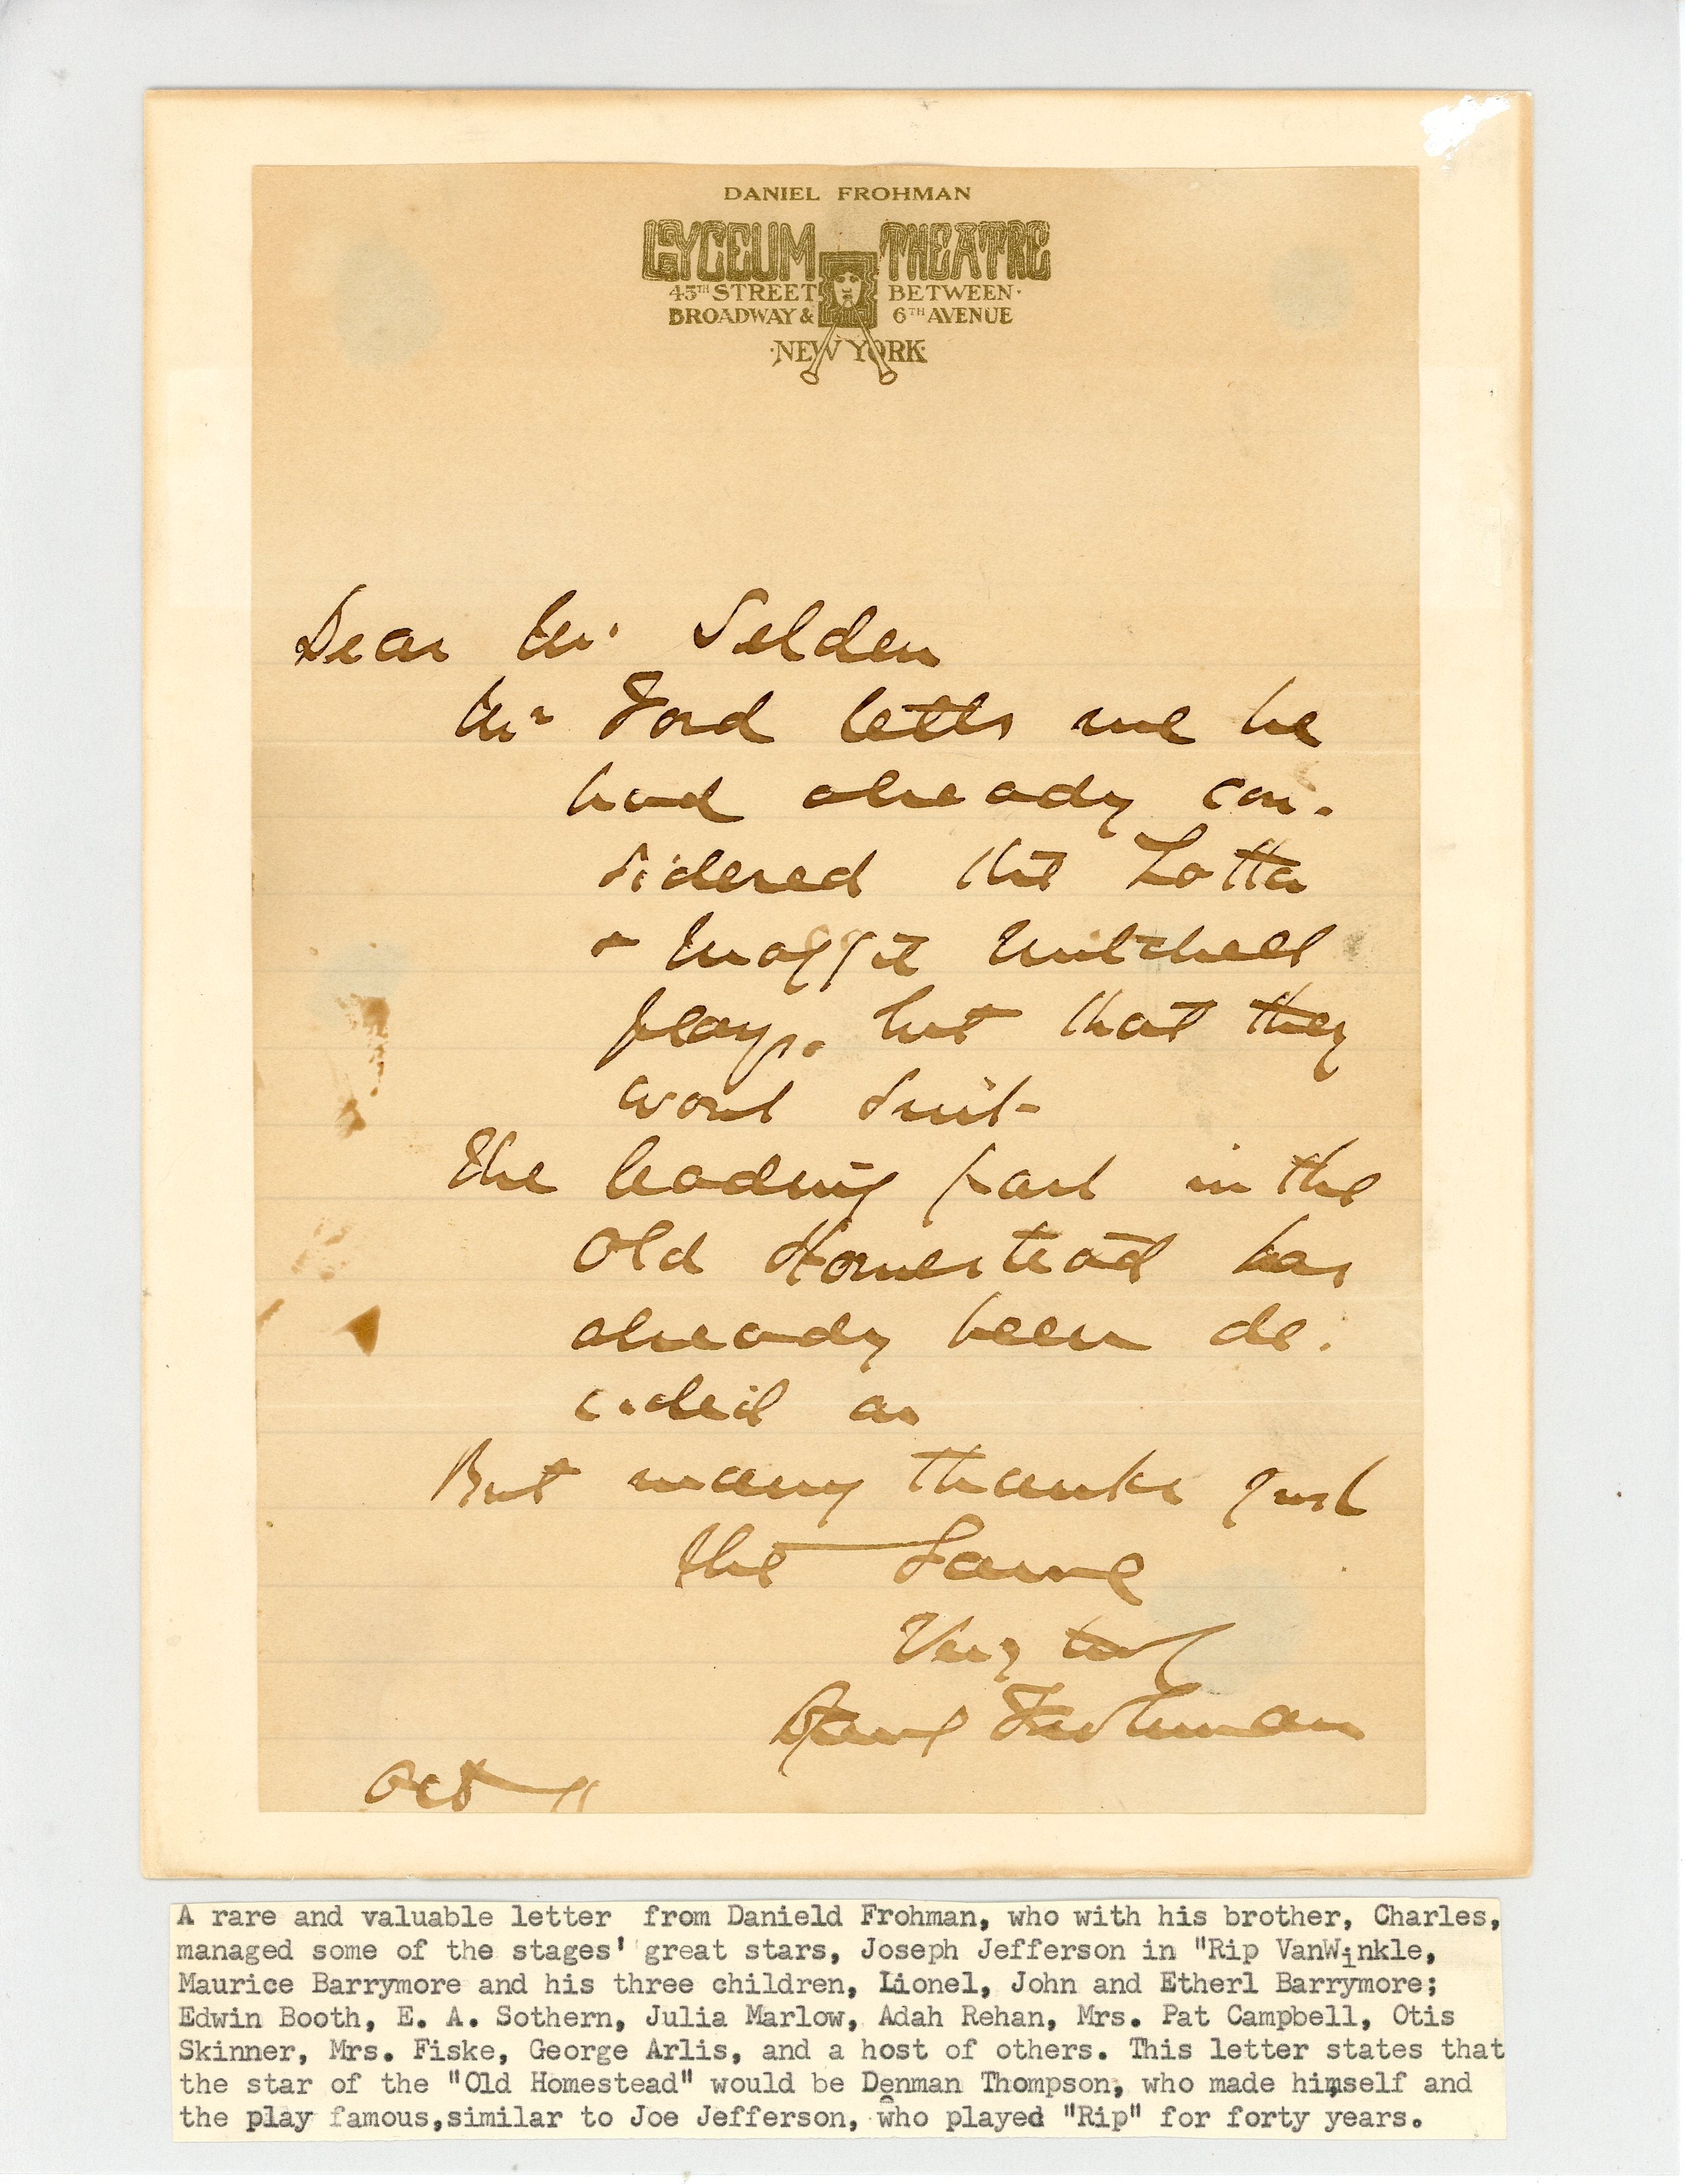 DANIEL FROHMAN
LYCEUM THEATRE
45TH STREET BETWEEN
BROADWAY & 6TH AVENUE
·NEW YORK·
Dear Mr. Selden
Mr Ford tells me he
had already con-
sidered the Lotta
& Maggie Mitchell
plays. but that they
wont suit-
The leading part in the
Old Homestead has
already been de-
cided on
But many thanks just
the same
Very truly
Danl Frohman
Oct 11
A rare and valuable letter from Danield Frohman, who with his brother, Charles,
managed some of the stages' great stars, Joseph Jefferson in "Rip VanWinkle,
Maurice Barrymore and his three children, Lionel, John and Etherl Barrymore;
Edwin Booth, E. A. Sothern, Julia Marlow, Adah Rehan, Mrs. Pat Campbell, Otis
Skinner, Mrs. Fiske, George Arlis, and a host of others. This letter states that
the star of the "Old Homestead" would be Denman Thompson, who made himself and
the play famous,similar to Joe Jefferson, who played "Rip" for forty years.